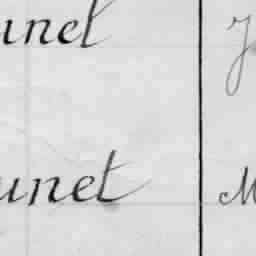 unet J
unet M